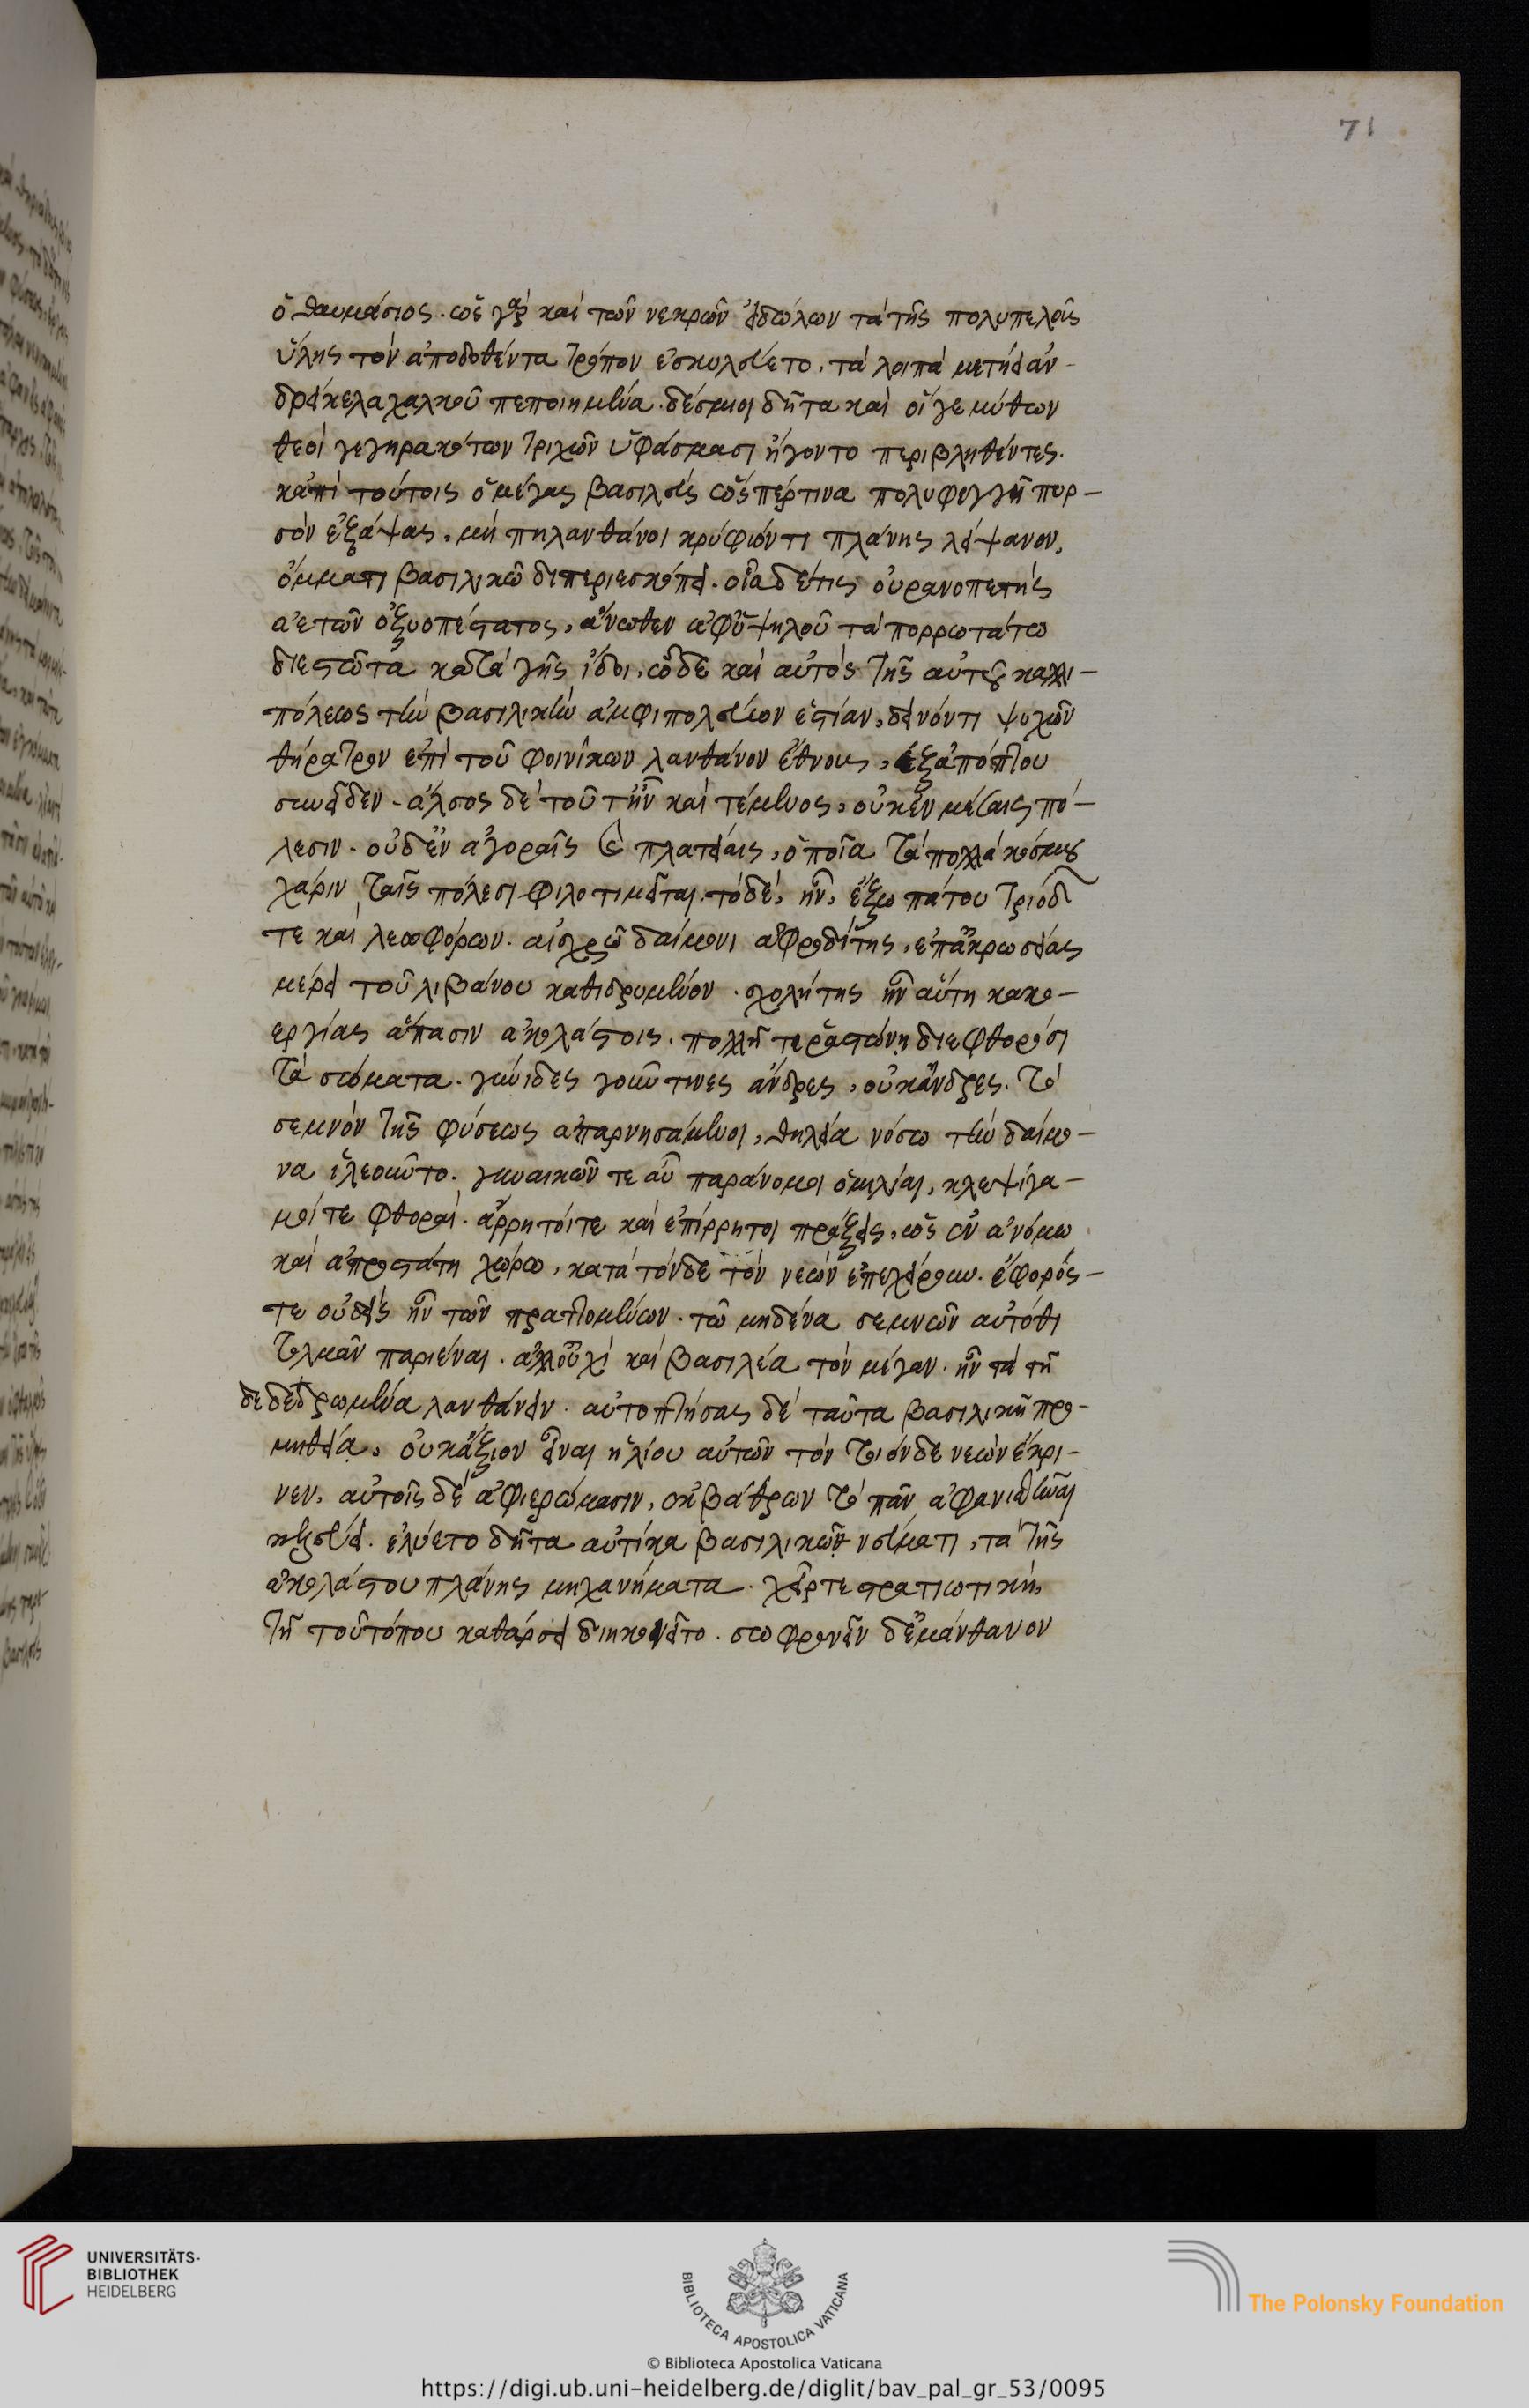 71
ὁ θαυμάσιος. ὡς γὰρ καὶ τῶν νεκρῶν εἰδώλων τὰ τῆς πολυτελοῦς
ὕλης τὸν ἀποδοθέντα τρόπον ἐσκυλεύετο. τὰ λοιπὰ μετῄει ἀν-
δρείκελα χαλκοῦ πεποιημένα. δέσμιοι δῆτα καὶ οἵγε μύθων
θεοὶ γεγηρακότων τριχῶν ὑφάσμασι ἤγοντο περιβληθέντες.
κἀπὶ τούτοις ὁ μέγας βασιλεὺς ὥσπέρ τινα πολυφεγγῆ πυρ-
σὸν ἐξάψας, μή πη λανθάνοι κρύφιόν τι πλάνης λείψανον,
ὄμματι βασιλικῷ διεπεριεσκόπει. οἷα δέ τις οὐρανοπετὴς
ἀετῶν ὀξυοπέστατος, ἄνωθεν ἀφ' ὑψηλοῦ τὰ πορρωτάτω
διεστῶτα κατὰ γῆς ἴδοι. ὧδε καὶ αὐτὸς τῆς αὐτοῦ καλλι-
πόλεως τὴν βασιλικὴν ἀμφιπολεύων ἑστίαν, δεινόν τι ψυχῶν
θήρατρον ἐπὶ τοῦ φοινίκων λανθάνον ἔθνους, ἐξ ἀπόπτου
συνεῖδεν. ἄλσος δὲ τοῦτ' ἦν καὶ τέμενος, οὐκ ἐν μέσαις πό-
λεσιν. οὐδ' ἐν ἀγοραῖς καὶ πλατείαις, ὁποῖα τὰ πολλὰ κόσμου
χάριν ταῖς πόλεσι φιλοτιμεῖται. τὸ δὲ, ἦν, ἔξω πάτου τριόδων
τε καὶ λεωφόρων. αἰσχρῷ δαίμονι ἀφροδίτης, ἐπ' ἀκρωρείας
μέρει τοῦ λιβάνου καθιδρυμένον. σχολή τις ἦν αὕτη κακο-
εργίας ἅπασιν ἀκολάστοις. πολλῇ τε ῥᾳστώνῃ διεφθορόσι
τὰ σώματα. γύνιδες γοῦν τινες ἄνδρες, οὐκ ἄνδρες. τὸ
σεμνὸν τῆς φύσεως ἀπαρνησάμενοι, θηλεία νόσω τὴν δαίμο-
να ἱλεοῦντο. γυναικῶν τε αὖ παράνομοι ὁμιλίαι, κλεψίγα-
μοί τε φθοραὶ. ἄρρητοί τε καὶ ἐπίρρητοι πράξεις, ὡς ἐν ἀνόμω
καὶ ἀπροστάτη χώρω, κατὰ τόνδε τὸν νεὼν ἐπεχείρουν. ἔφορός
τε οὐδεὶς ἦν τῶν πραττομένων. τῷ μηδένα σεμνῶν αὐτόθι
τολμᾶν παριέναι. ἀλλ' οὐχὶ καὶ βασιλέα τὸν μέγαν. ἦν τὰ τῇ
δε δεδρωμένα λανθάνειν. αὐτοπτήσας δὲ ταῦτα βασιλικῇ προ-
μηθείᾳ, οὐκ ἄξιον εἶναι ἡλίου αὐτῶν τὸν τοιόνδε νεὼν ἔκρι-
νεν. αὐτοῖς δὲ ἀφιερώμασιν, ἐκ βάθρων τὸ πᾶν ἀφανισθῆναι
κελεύει. ἐλύετο δῆτα αὐτίκα βασιλικῷ νεύματι, τὰ τῆς
ἀκολάστου πλάνης μηχανήματα. χείρ τε στρατιωτικὴ,
τῇ τοῦ τόπου καθάρσει διηκονεῖτο. σωφρονεῖν δ' ἐμάνθανον
UNIVERSITÄTS-
BIBLIOTHEK
HEIDELBERG
BIBLIOTECA APOSTOLICA VATICANA
The Polonsky Foundation
© Biblioteca Apostolica Vaticana
https://digi.ub.uni-heidelberg.de/diglit/bav_pal_gr_53/0095